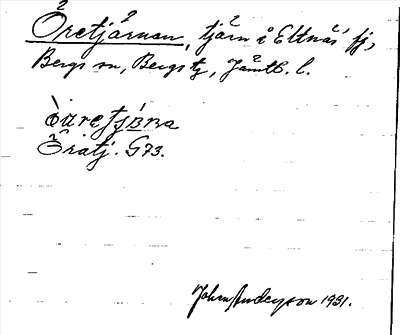 Öretjärnen, tjärn i Eltnäs' fj,
Bergs sn, Bergs tg, Jämtl. l.
Öratj. G73.
John Anderson 1931.